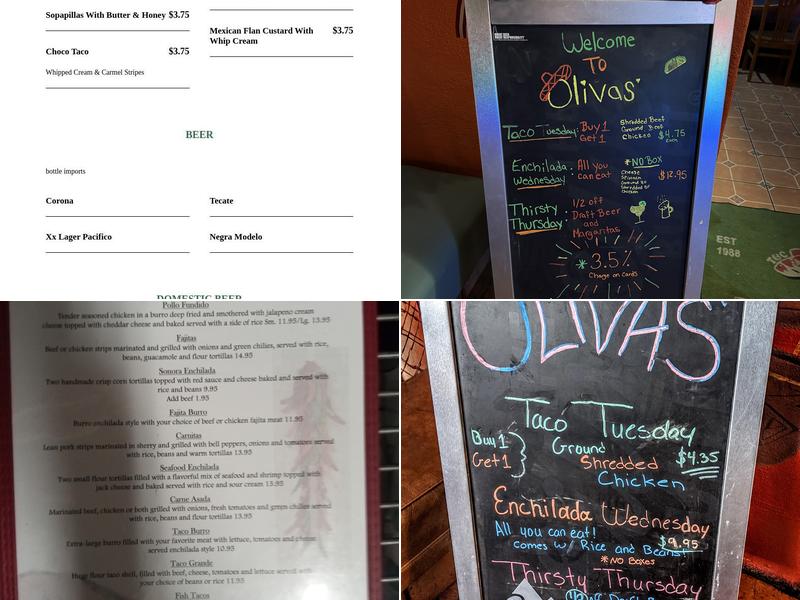 Sopapillas With Butter & Honey $3.75
Choco Taco $3.75
Whipped Cream & Carmel Stripes
Mexican Flan Custard With $3.75
Whip Cream
BEER
bottle imports
Corona
Tecate
Xx Lager Pacifico
Negra Modelo
DOMESTIC BEER
Welcome
To
Olivas'
Taco Tuesday: Buy 1
Get 1
Shredded Beef
Ground Beef
Chicken $4.75
each
Enchilada : All you
Wednesday can eat
*NO BOX
Cheese
Spinach
Ground Bf
Shredded Bf
Chicken
$12.95
Thirsty : 1/2 off
Thursday Draft Beer
and
Margaritas
* 3.5%
Charge on Cards
EST
1988
Pollo Fundido
Tender seasoned chicken in a burro deep fried and smothered with jalapeno cream
cheese topped with cheddar cheese and baked served with a side of rice Sm. 11.95/Lg. 13.95
Fajitas
Beef or chicken strips marinated and grilled with onions and green chilies, served with rice,
beans, guacamole and flour tortillas 14.95
Sonora Enchilada
Two handmade crisp corn tortillas topped with red sauce and cheese baked and served with
rice and beans 9.95
Add beef 1.95
Fajita Burro
Burro enchilada style with your choice of beef or chicken fajita meat 11.95
Carnitas
Lean pork strips marinated in sherry and grilled with bell peppers, onions and tomatoes served
with rice, beans and warm tortillas 13.95
Seafood Enchilada
Two small flour tortillas filled with a flavorful mix of seafood and shrimp topped with
jack cheese and baked served with rice and sour cream 13.95
Carne Asada
Marinated beef, chicken or both grilled with onions, fresh tomatoes and green chilies served
with rice, beans and flour tortillas 13.95
Taco Burro
Extra-large burro filled with your favorite meat with lettuce, tomatoes and cheese
served enchilada style 10.95
Taco Grande
Huge flour taco shell, filled with beef, cheese, tomatoes and lettuce served with
your choice of beans or rice 11.95
Fish Tacos
OLIVAS'
Taco Tuesday
Buy 1
Get 1
Ground
Shredded
Chicken
$4.35
Enchilada Wednesday
All you can eat! $9.95
comes w/ Rice and Beans
*NO Boxes
Thirsty Thursday